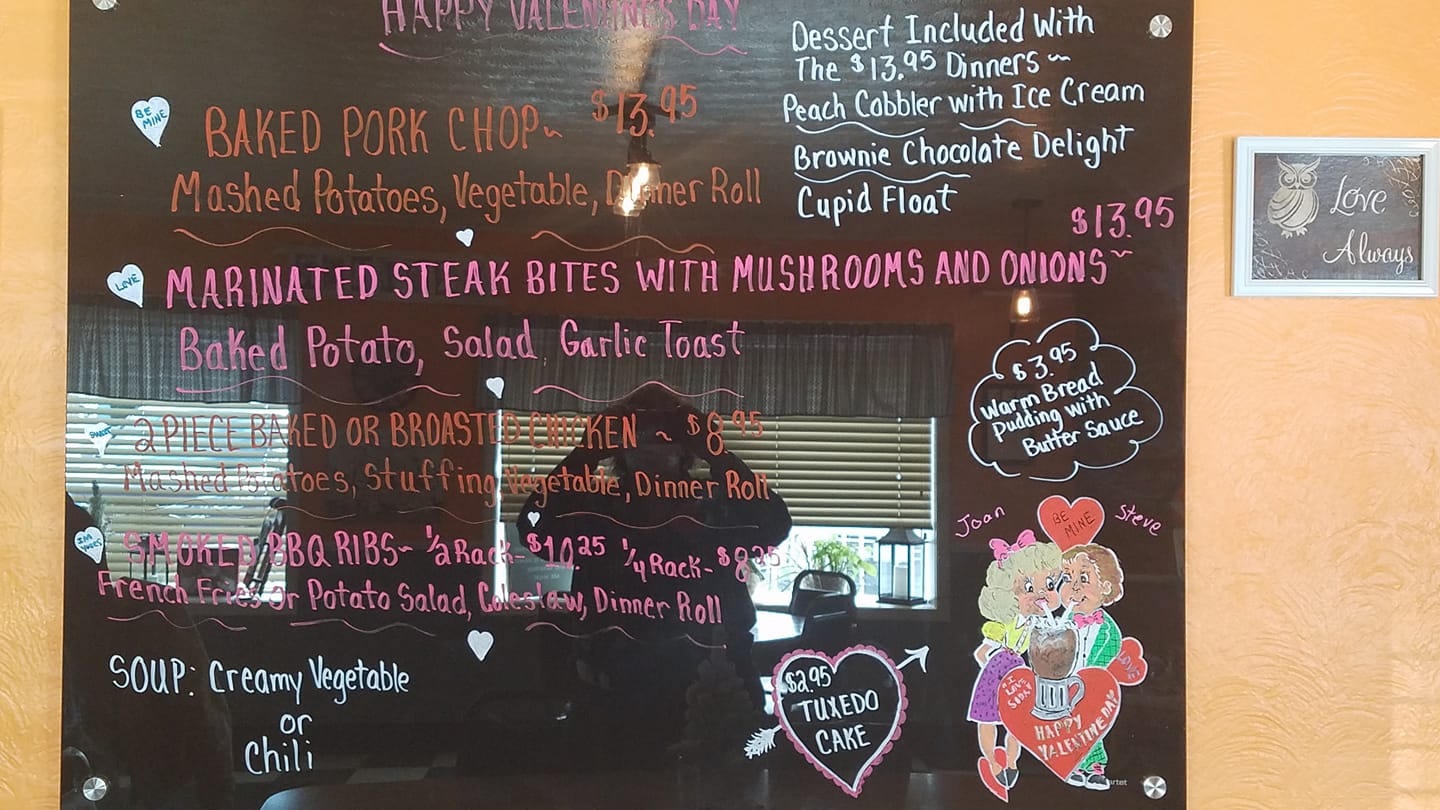 HAPPY VALENTINES DAY
BE MINE
BAKED PORK CHOP~ $13.95
Mashed Potatoes, Vegetable, Dinner Roll
Dessert Included With
The $13.95 Dinners ~
Peach Cobbler with Ice Cream
Brownie Chocolate Delight
Cupid Float
LOVE
$13.95
MARINATED STEAK BITES WITH MUSHROOMS AND ONIONS~
Baked Potato, Salad, Garlic Toast
2 PIECE BAKED OR BROASTED CHICKEN ~ $8.95
Mashed Potatoes, Stuffing, Vegetable, Dinner Roll
SMOKED BBQ RIBS~ 1/2 Rack- $10.25 1/4 Rack- $8.25
French Fries or Potato Salad, Coleslaw, Dinner Roll
SOUP: Creamy Vegetable
or
Chili
$2.95
TUXEDO
CAKE
$3.95
Warm Bread
Pudding with
Butter Sauce
Joan
BE
MINE
Steve
"I
LOVE
SODA"
HAPPY
VALENTINE DAY
Love
Always